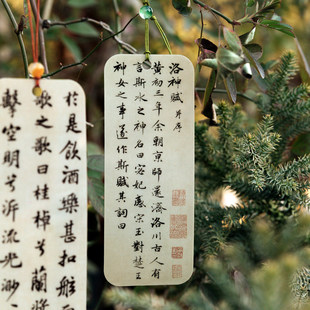 洛神賦 并序
黃初三年余朝京師還濟洛川古人有
言斯水之神名曰宓妃感宋玉對楚王
神女之事遂作斯賦其詞曰
於是飲酒樂甚扣舷
歌之歌曰桂棹兮蘭槳
擊空明兮泝流光渺